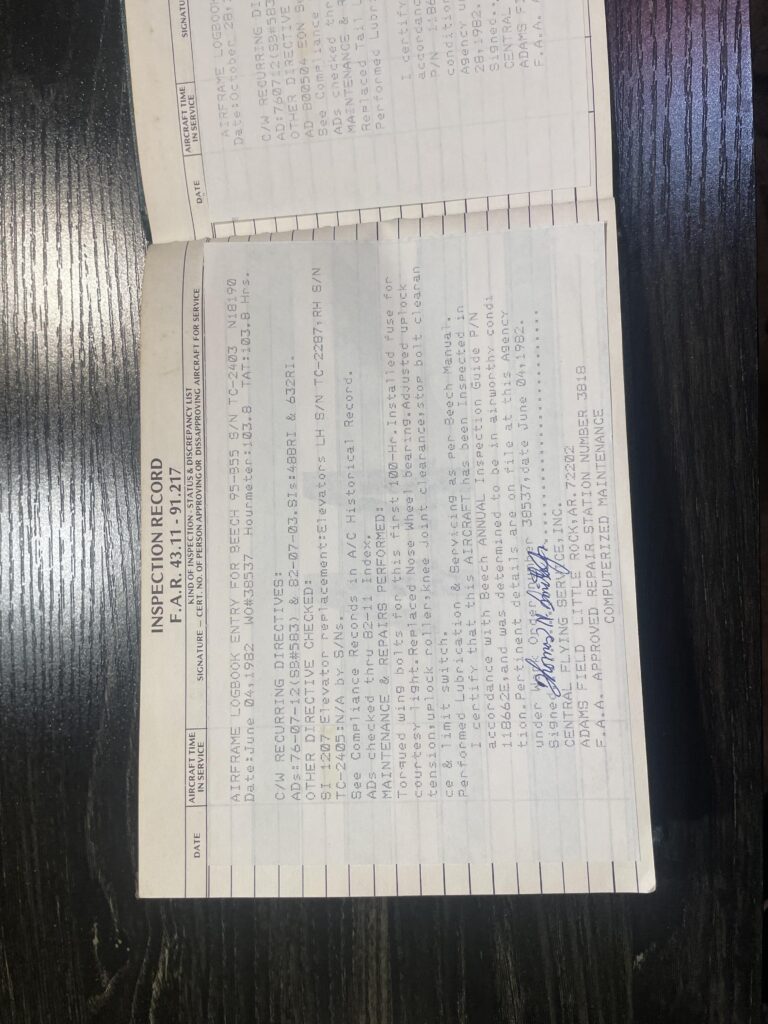 INSPECTION RECORD
F.A.R. 43.11 - 91.217
DATE
AIRCRAFT TIME
IN SERVICE
KIND OF INSPECTION - STATUS & DISCREPANCY LIST
SIGNATURE – CERT. NO. OF PERSON APPROVING OR DISSAPPROVING AIRCRAFT FOR SERVICE
AIRFRAME LOGBOOK ENTRY FOR BEECH 95-B55 S/N TC-2403 N18190
Date:June 04,1982 WO#38537 Hourmeter:103.8 TAT:103.8 Hrs.
C/W RECURRING DIRECTIVES:
ADs:76-07-12(SB#583) & 82-07-03.SIs:488RI & 632RI.
OTHER DIRECTIVE CHECKED:
SI 1207 Elevator replacement:Elevators LH S/N TC-2287;RH S/N
TC-2405:N/A by S/Ns.
See Compliance Records in A/C Historical Record.
ADs checked thru 82-11 Index.
MAINTENANCE & REPAIRS PERFORMED:
Torqued wing bolts for this first 100-Hr.Installed fuse for
courtesy light.Replaced Nose Wheel bearing.Adjusted uplock
tension,uplock roller,knee Joint clearance,stop bolt clearan
ce & limit switch.
Performed Lubrication & Servicing as per Beech Manual.
I certify that this AIRCRAFT has been Inspected in
accordance with Beech ANNUAL Inspection Guide P/N
118662E,and was determined to be in airworthy condi
tion.Pertinent details are on file at this Agency
under Work Order Number 38537,date June 04,1982.
Signed
CENTRAL FLYING SERVICE,INC.
ADAMS FIELD LITTLE ROCK,AR.72202
F.A.A. APPROVED REPAIR STATION NUMBER 3818
COMPUTERIZED MAINTENANCE
DATE
AIRCRAFT TIME
IN SERVICE
AIRFRAME LOGBOOK
Date:October 28,
C/W RECURRING DI
AD:760712(SB#583
OTHER DIRECTIVE
AD 800504 EON
See Compliance
ADs checked thr
MAINTENANCE & R
Replaced Tail L
Performed Lubri
I certify
accordanc
P/N 1186
condition
Agency un
28,1982.
Signed..
CENTRAL
ADAMS F
F.A.A. A